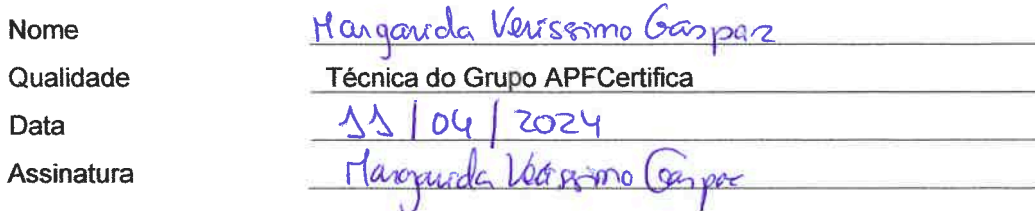 Nome Margarida Veríssimo Gaspar
Qualidade Técnica do Grupo APFCertifica
Data 11/04/2024
Assinatura Margarida Veríssimo Gaspar